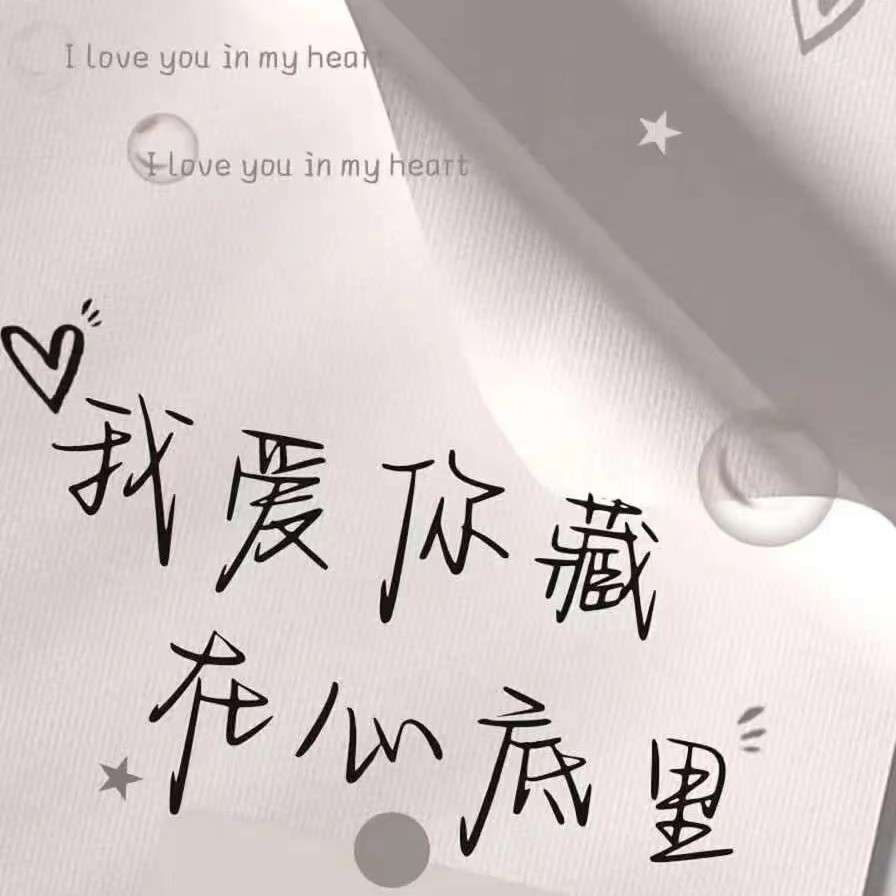 I love you in my heart
I love you in my heart
我爱你藏
在心底里